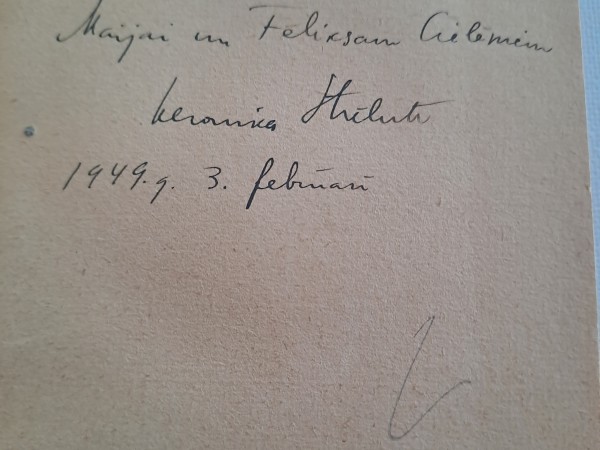 Maijai un Fēliksam Cielēniem
Veronika Strēlerte
1949.g. 3. februārī